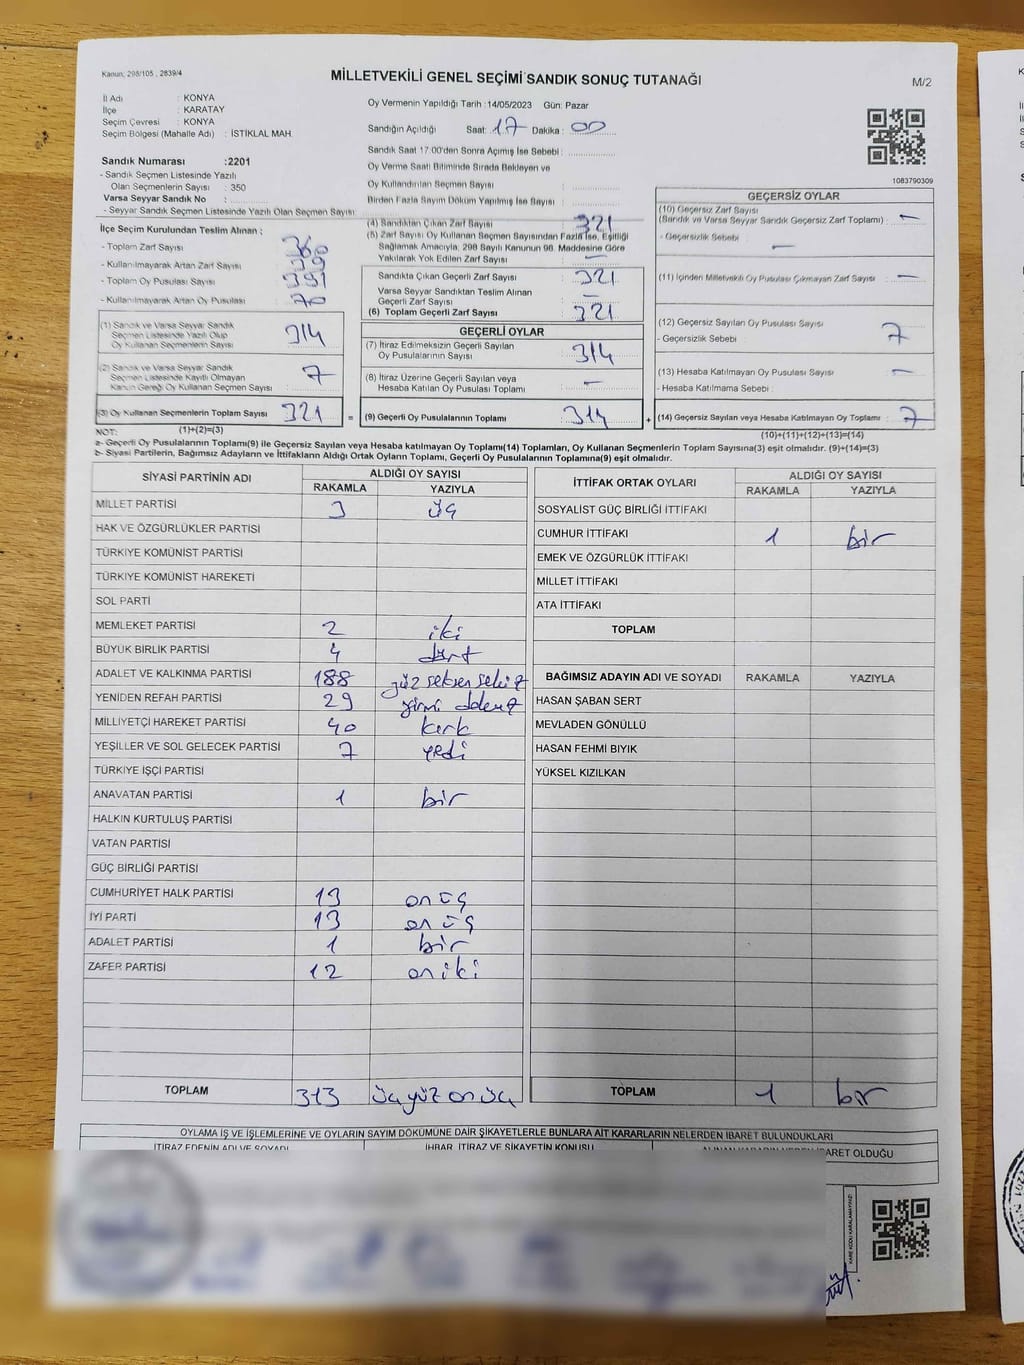 Kanun, 298/105 , 2839/4
MİLLETVEKİLİ GENEL SEÇİMİ SANDIK SONUÇ TUTANAĞI
M/2
İl Adı : KONYA
İlçe : KARATAY
Seçim Çevresi : KONYA
Seçim Bölgesi (Mahalle Adı) : İSTİKLAL MAH.
Sandık Numarası :2201
- Sandık Seçmen Listesinde Yazılı
Olan Seçmenlerin Sayısı : 350
Varsa Seyyar Sandık No :
- Seyyar Sandık Seçmen Listesinde Yazılı Olan Seçmen Sayısı:
İlçe Seçim Kurulundan Teslim Alınan :
- Toplam Zarf Sayısı : 360
- Kullanılmayarak Artan Zarf Sayısı : 39
- Toplam Oy Pusulası Sayısı : 391
- Kullanılmayarak Artan Oy Pusulası : 70
(1) Sandık ve Varsa Seyyar Sandık
Seçmen Listesinde Yazılı Olup
Oy Kullanan Seçmenlerin Sayısı : 314
(2) Sandık ve Varsa Seyyar Sandık
Seçmen Listesinde Kayıtlı Olmayan
Kanun Gereği Oy Kullanan Seçmen Sayısı : 7
(3) Oy Kullanan Seçmenlerin Toplam Sayısı : 321 =
(1)+(2)=(3)
Oy Vermenin Yapıldığı Tarih :14/05/2023 Gün: Pazar
Sandığın Açıldığı Saat: 17 Dakika : 00
Sandık Saat 17:00'den Sonra Açılmış İse Sebebi :
Oy Verme Saati Bitiminde Sırada Bekleyen ve
Oy Kullandırılan Seçmen Sayısı :
Birden Fazla Sayım Döküm Yapılmış İse Sayısı :
(4) Sandıktan Çıkan Zarf Sayısı : 321
(5) Zarf Sayısı Oy Kullanan Seçmen Sayısından Fazla İse, Eşitliği
Sağlamak Amacıyla; 298 Sayılı Kanunun 98. Maddesine Göre
Yakılarak Yok Edilen Zarf Sayısı : —
Sandıkta Çıkan Geçerli Zarf Sayısı : 321
Varsa Seyyar Sandıktan Teslim Alınan
Geçerli Zarf Sayısı : —
(6) Toplam Geçerli Zarf Sayısı : 321
GEÇERLİ OYLAR
(7) İtiraz Edilmeksizin Geçerli Sayılan
Oy Pusulalarının Sayısı : 314
(8) İtiraz Üzerine Geçerli Sayılan veya
Hesaba Katılan Oy Pusulası Toplamı : —
(9) Geçerli Oy Pusulalarının Toplamı : 314 +
1083790309
GEÇERSİZ OYLAR
(10) Geçersiz Zarf Sayısı
(Sandık ve Varsa Seyyar Sandık Geçersiz Zarf Toplamı) : —
- Geçersizlik Sebebi : —
(11) İçinden Milletvekili Oy Pusulası Çıkmayan Zarf Sayısı : —
(12) Geçersiz Sayılan Oy Pusulası Sayısı : 7
- Geçersizlik Sebebi :
(13) Hesaba Katılmayan Oy Pusulası Sayısı : —
- Hesaba Katılmama Sebebi :
(14) Geçersiz Sayılan veya Hesaba Katılmayan Oy Toplamı : 7
(10)+(11)+(12)+(13)=(14)
NOT:
a- Geçerli Oy Pusulalarının Toplamı(9) ile Geçersiz Sayılan veya Hesaba katılmayan Oy Toplamı(14) Toplamları, Oy Kullanan Seçmenlerin Toplam Sayısına(3) eşit olmalıdır. (9)+(14)=(3)
b- Siyasi Partilerin, Bağımsız Adayların ve İttifakların Aldığı Ortak Oyların Toplamı, Geçerli Oy Pusulalarının Toplamına(9) eşit olmalıdır.
SİYASİ PARTİNİN ADI ALDIĞI OY SAYISI
RAKAMLA YAZIYLA
MİLLET PARTİSİ 3 üç
HAK VE ÖZGÜRLÜKLER PARTİSİ
TÜRKİYE KOMÜNİST PARTİSİ
TÜRKİYE KOMÜNİST HAREKETİ
SOL PARTİ
MEMLEKET PARTİSİ 2 iki
BÜYÜK BİRLİK PARTİSİ 4 dört
ADALET VE KALKINMA PARTİSİ 188 yüz seksen sekiz
YENİDEN REFAH PARTİSİ 29 yirmi dokuz
MİLLİYETÇİ HAREKET PARTİSİ 40 kırk
YEŞİLLER VE SOL GELECEK PARTİSİ 7 yedi
TÜRKİYE İŞÇİ PARTİSİ
ANAVATAN PARTİSİ 1 bir
HALKIN KURTULUŞ PARTİSİ
VATAN PARTİSİ
GÜÇ BİRLİĞİ PARTİSİ
CUMHURİYET HALK PARTİSİ 13 on üç
İYİ PARTİ 13 on üç
ADALET PARTİSİ 1 bir
ZAFER PARTİSİ 12 on iki
TOPLAM 313 üçyüz on üç
İTTİFAK ORTAK OYLARI ALDIĞI OY SAYISI
RAKAMLA YAZIYLA
SOSYALİST GÜÇ BİRLİĞİ İTTİFAKI
CUMHUR İTTİFAKI 1 bir
EMEK VE ÖZGÜRLÜK İTTİFAKI
MİLLET İTTİFAKI
ATA İTTİFAKI
TOPLAM
BAĞIMSIZ ADAYIN ADI VE SOYADI RAKAMLA YAZIYLA
HASAN ŞABAN SERT
MEVLADEN GÖNÜLLÜ
HASAN FEHMİ BIYIK
YÜKSEL KIZILKAN
TOPLAM 1 bir
OYLAMA İŞ VE İŞLEMLERİNE VE OYLARIN SAYIM DÖKÜMÜNE DAİR ŞİKAYETLERLE BUNLARA AİT KARARLARIN NELERDEN İBARET BULUNDUKLARI
İTİRAZ EDENİN ADI VE SOYADI İHBAR, İTİRAZ VE ŞİKAYETİN KONUSU